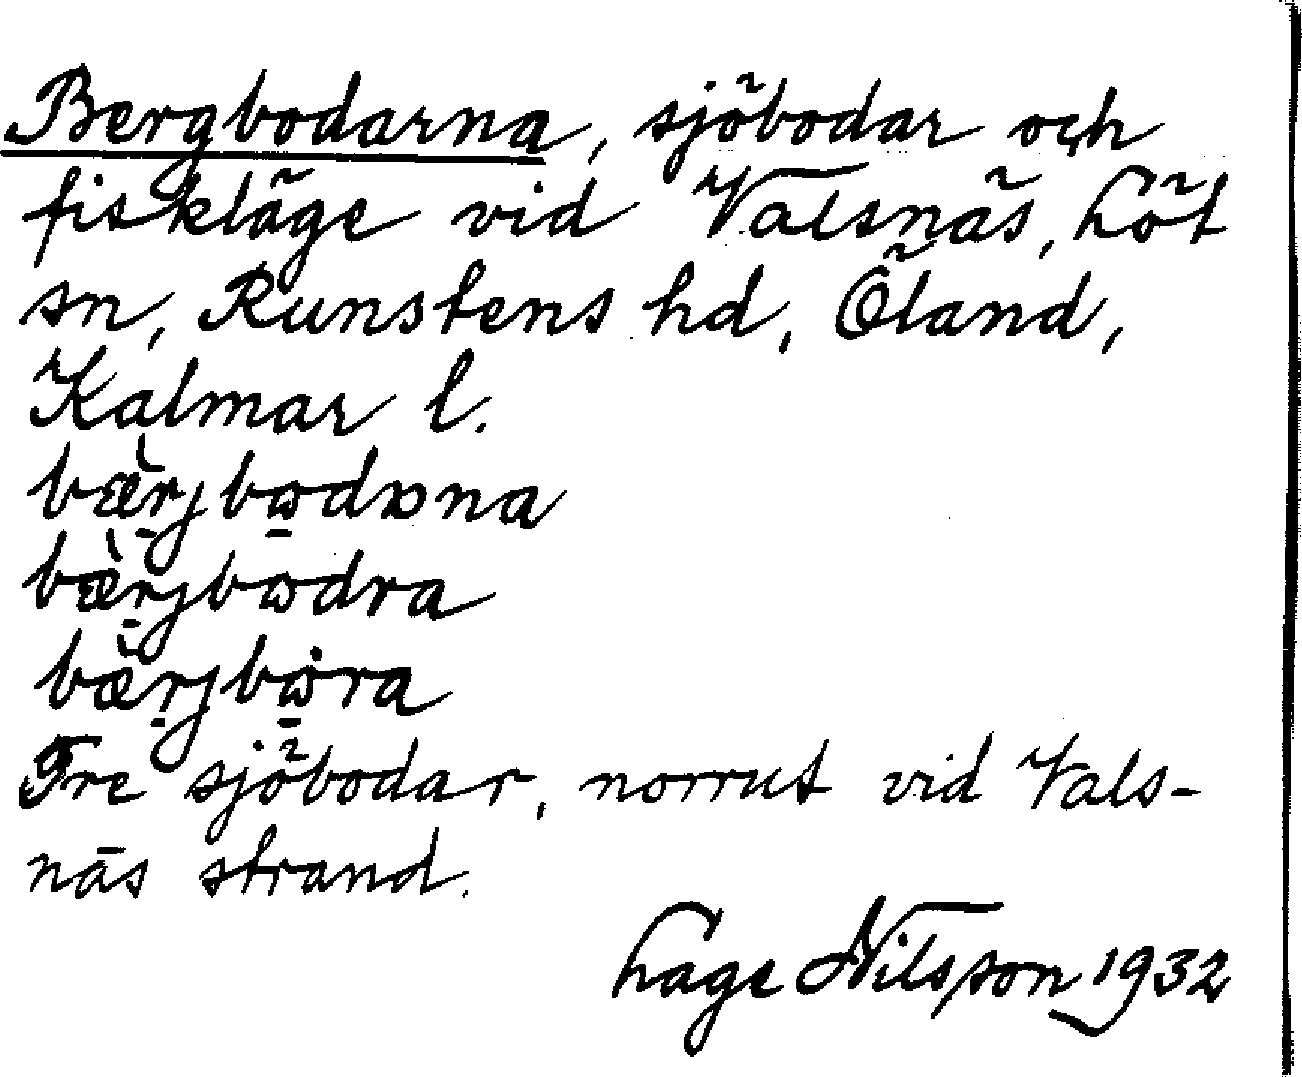 Bergbodarna, sjöbodar och
fiskläge vid Valsnäs, Löt
sn, Runstens hd, Öland,
Kalmar l.
bæ̀rjbɷdɒna
bæ̀rjbɷdra
bæ̀rjbɷ̇ra
Tre sjöbodar, norrut vid Vals-
näs strand.
Lage Nilsson 1932